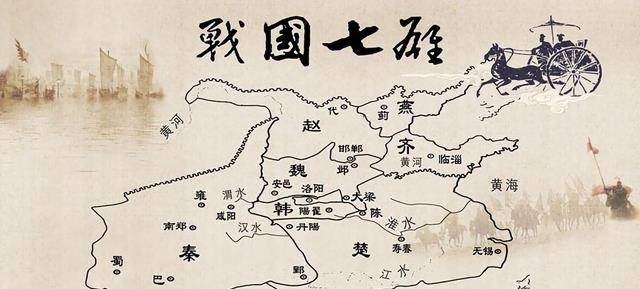 戰國七雄
代
燕
蓟
赵
黄河
邯郸
齐
邺
黄河
临淄
魏
安邑
洛阳
黄海
雍
渭水
大梁
咸阳
韩
陽翟
陈
淮水
南郑
汉水
丹陽
秦
楚
寿春
无锡
蜀
巴
郢
江水